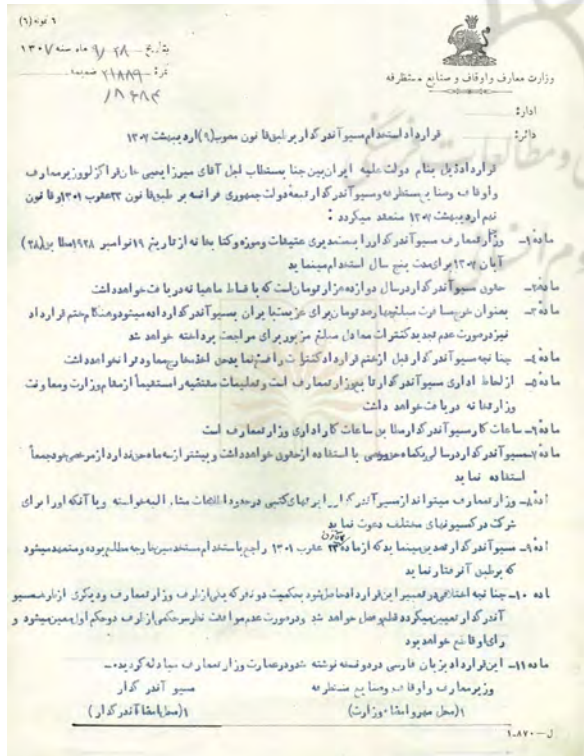 ٦ نونه (٦)
بتاریخ ٢٨ / ٩ ماه سنه ١٣٠٧
نمرهٔ ٢١٨٨٩ ضمیمه
١٨٦٨٤
وزارت معارف و اوقاف و صنایع مستظرفه
ادارهٔ
دائرهٔ
قرارداد استخدام مسیو آندر گدار بر طبق قانون مصوب (٩) اردیبهشت ١٣٠٧
قرارداد ذیل بنام دولت علیه ایران بین جناب مستطاب اجل آقای میرزا یحیی خان قراگزلو وزیر معارف
و اوقاف وصنایع مستظرفه و مسیو آندر گدار تبعهٔ دولت جمهوری فرانسه بر طبق قانون ٢٣ عقرب ١٣٠١ و قانون
نهم اردیبهشت ١٣٠٧ منعقد میگردد :
مادهٔ ١ــ وزارت معارف مسیو آندر گدار را بسمت مدیری عتیقات و موزه و کتابخانه از تاریخ ١٩ نوامبر ١٩٢٨ مطابق (٢٨)
آبان ١٣٠٧ برای مدت پنج سال استخدام مینماید
مادهٔ ٢ــ حقوق مسیو آندر گدار در سال دوازده هزار تومان است که باقساط ماهیانه دریافت خواهد داشت
مادهٔ ٣ــ بعنوان خرج مسافرت مبلغ چهارصد تومان برای عزیمت بایران بمسیو آندر گدار داده میشود و هنگام ختم قرارداد
نیز در صورت عدم تجدید کنترات معادل مبلغ مزبور برای مراجعت پرداخته خواهد شد
مادهٔ ٤ــ چنانچه مسیو آندر گدار قبل از ختم قرارداد کنترات را فسخ نماید حق اخذ مخارج معاودت را نخواهد داشت
مادهٔ ٥ــ از لحاظ اداری مسیو آندر گدار تابع وزارت معارف است و تعلیمات مقتضیه را مستقیماً از مقام وزارت و معاونت
وزارتخانه دریافت خواهد داشت
مادهٔ ٦ــ ساعات کار مسیو آندر گدار مطابق ساعات کار اداری وزارت معارف است
مادهٔ ٧ــ مسیو آندر گدار در سال یکماه حق مرخصی با استفاده از حقوق خواهد داشت و بیشتر از سه ماه حق ندارد از مرخصی خود جمعاً
استفاده نماید
ادهٔ ٨ــ وزارت معارف میتواند از مسیو آندر گدار راپرتهای کتبی در حدود اطلاعات مشار الیه خواسته و یا آنکه او را برای
شرکت در کمسیونهای مختلف دعوت نماید
ادهٔ ٩ــ مسیو آندر گدار تصدیق مینماید که از مادهٔ قانون ٢٣ عقرب ١٣٠١ راجع باستخدام مستخدمین خارجه مطلع بوده و متعهد میشود
که بر طبق آن رفتار نماید
اده ١٠ــ چنانچه اختلافی در تعبیر این قرارداد حاصل شود بحکمیت دو نفر که یکی از طرف وزارت معارف و دیگری از طرف مسیو
آندر گدار تعیین میگردد قطع و فصل خواهد شد و در صورت عدم موافقت نظر سرحکمی از طرف دو حکم اول معین میشود و
رای او قاطع خواهد بود
ماده ١١ــ این قرارداد بزبان فارسی در دو نسخه نوشته شود در عمارت وزارت معارف مبادله گردید
وزیر معارف و اوقاف وصنایع مستظرفه
مسیو آندر گدار
(محل مهر و امضاء وزارت)
(محل امضا آندر گدار)
ل ــ ١٠٨٧٠